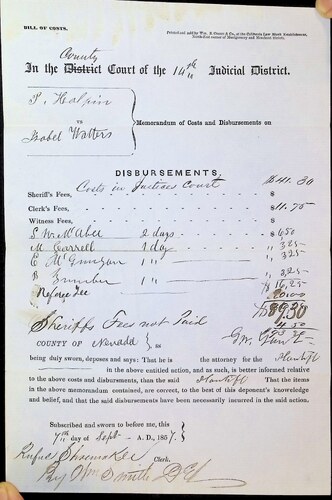 BILL OF COSTS.
Printed and sold by Wm. B. Cooke & Co., at the California Law Blank Establishment,
North-East corner of Montgomery and Merchant Streets.
County
In the District Court of the 14th Judicial District.
P. Halpin
vs
Isabel Walters
Memorandum of Costs and Disbursements on
DISBURSEMENTS.
Costs in Justices Court $41.30
Sheriff's Fees, $
Clerk's Fees, $11.75
Witness Fees, $
2 days $6.50
M Carrell 1 day " 3.25
1 " " 3.25
1 " " 3.25
$16.25
Referee Fee 20.00
$89.30
4.50
Sheriffs Fees not Paid
COUNTY OF Nevada } ss
being duly sworn, deposes and says: That he is the attorney for the Plaintiff
in the above entitled action, and as such, is better informed
relative to the above costs and disbursements, than the said Plaintiff That the items
in the above memorandum contained, are correct, to the best of this deponent's knowledge
and belief, and that the said disbursements have been necessarily incurred in the said action.
Subscribed and sworn to before me, this
7th day of Sept A. D., 1857.
Rufus Shoemaker Clerk.
By Wm Smith D Cl